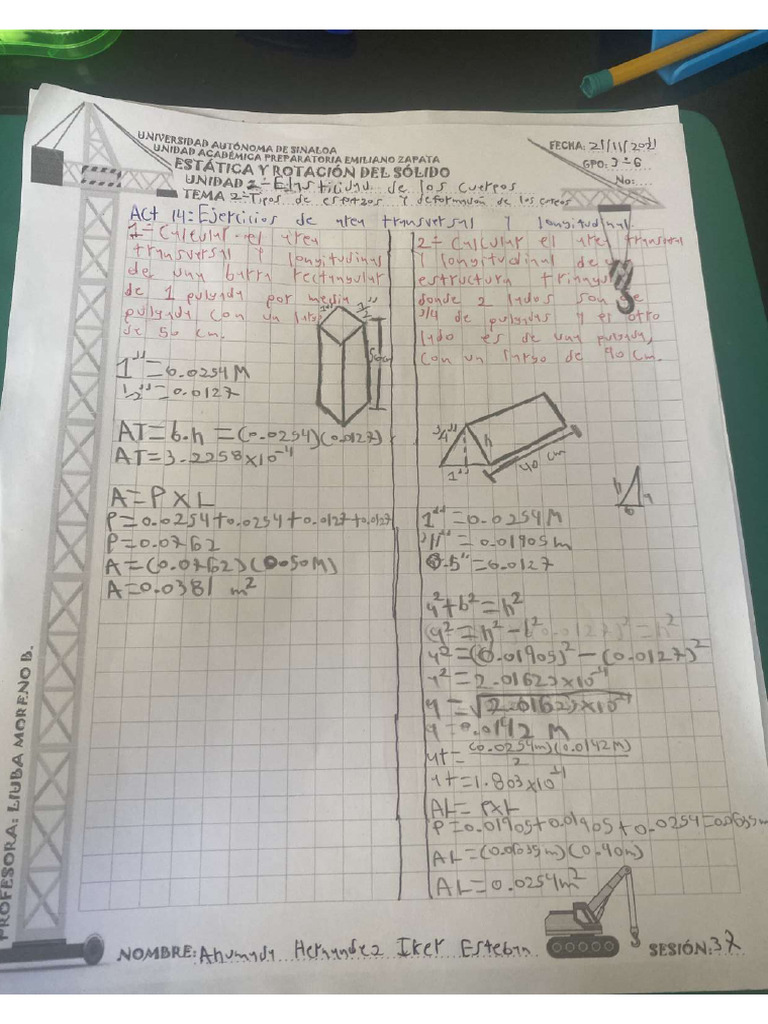 UNIVERSIDAD AUTÓNOMA DE SINALOA
UNIDAD ACADÉMICA PREPARATORIA EMILIANO ZAPATA
ESTÁTICA Y ROTACIÓN DEL SÓLIDO
UNIDAD 2-Elasticidad de los cuerpos
TEMA 2-Tipos de esfuerzos y deformación de los cuerpos
FECHA: 21/11/2021
GPO: 3-6
No:
Act 14: Ejercicios de area transversal y longitudinal
1- Calcular el area
transversal y longitudinal
de una barra rectangular
de 1 pulgada por media
pulgada con un largo
de 50 cm.
1"
1/2"
50cm
1"=0.0254M
1/2"=0.0127
AT=b.h=(0.0254)(0.0127)
AT=3.2258x10-4
A=PXL
P=0.0254+0.0254+0.0127+0.0127
P=0.0762
A=(0.0762)(0.50M)
A=0.0381 m2
2- Calcular el area transversal
y longitudinal de
estructura
donde 2 lados son de
3/4 de pulgadas y el otro
lado es de una pulgada,
con un largo de 40 cm.
3/4"
h
1"
40 cm
h
b
1"=0.0254M
=0.01905m
0.5"=0.0127
a2+b2=h2
a2=h2-b2
a2=(0.01905)2-(0.0127)2
a2=2.01627x10-4
a=√2.01627x10-4
a=0.0142 M
At=(0.0254m)(0.0142M)
2
At=1.803x10-4
AL=PXL
P=0.01905+0.01905+0.0254=0.0635m
AL=(0.0635m)(0.40m)
AL=0.0254m2
PROFESORA: LIUBA MORENO B.
NOMBRE: Ahumada Hernandez Iker Esteban
SESIÓN: 37